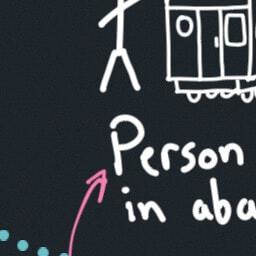 Person
in aba